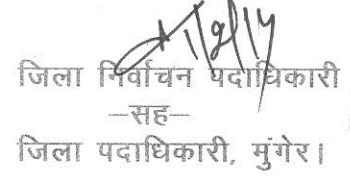 जिला निर्वाचन पदाधिकारी
—सह—
जिला पदाधिकारी, मुंगेर।